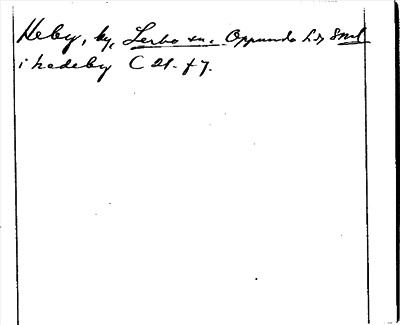 Heby, by, Lerbo sn. Oppunda hd Sml
i hadeby C 21. f 7.